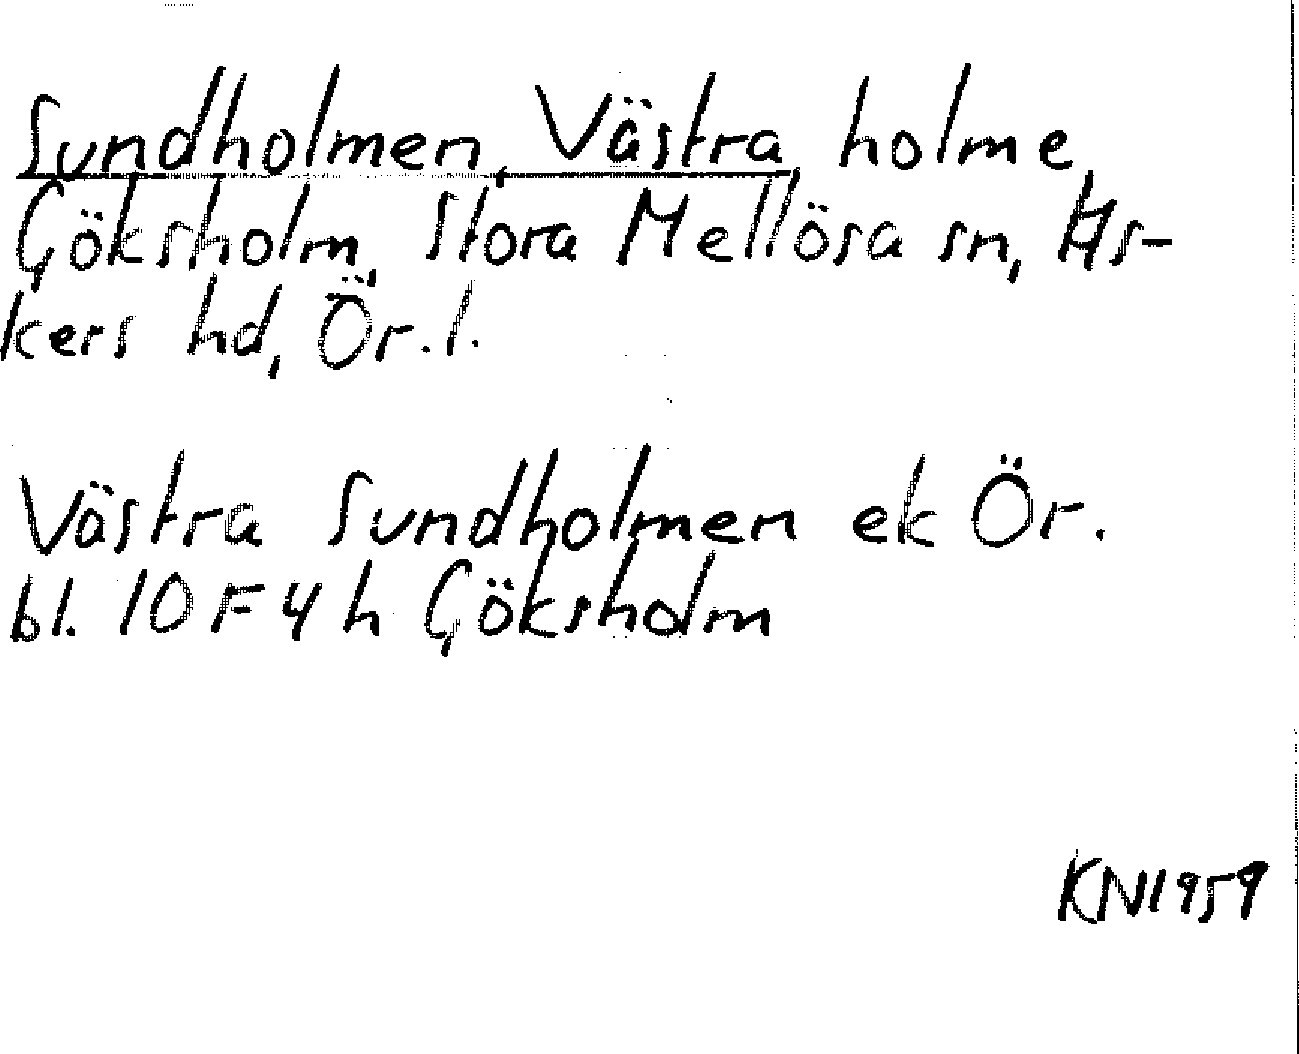 Sundholmen, Västra, holme,
Göksholm, Stora Mellösa sn, As-
kers hd, Ör. l.
Västra Sundholmen ek Ör.
bl. 10 F 4 h Göksholm
KN 1959